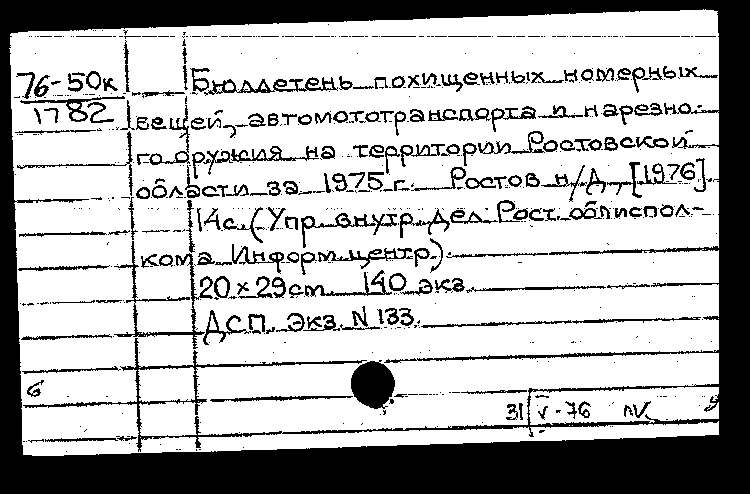 76-50к
1782
Бюллетень похищенных номерных
вещей, автомототранспорта и нарезно-
го оружия на территории Ростовской
области за 1975 г. Ростов н/Д, [1976].
14с. (Упр. внутр. дел. Рост. облиспол-
кома. Информ. центр).
20×29 cm 140 экз.
ДСП. Экз. N 133.
6
31 V-76